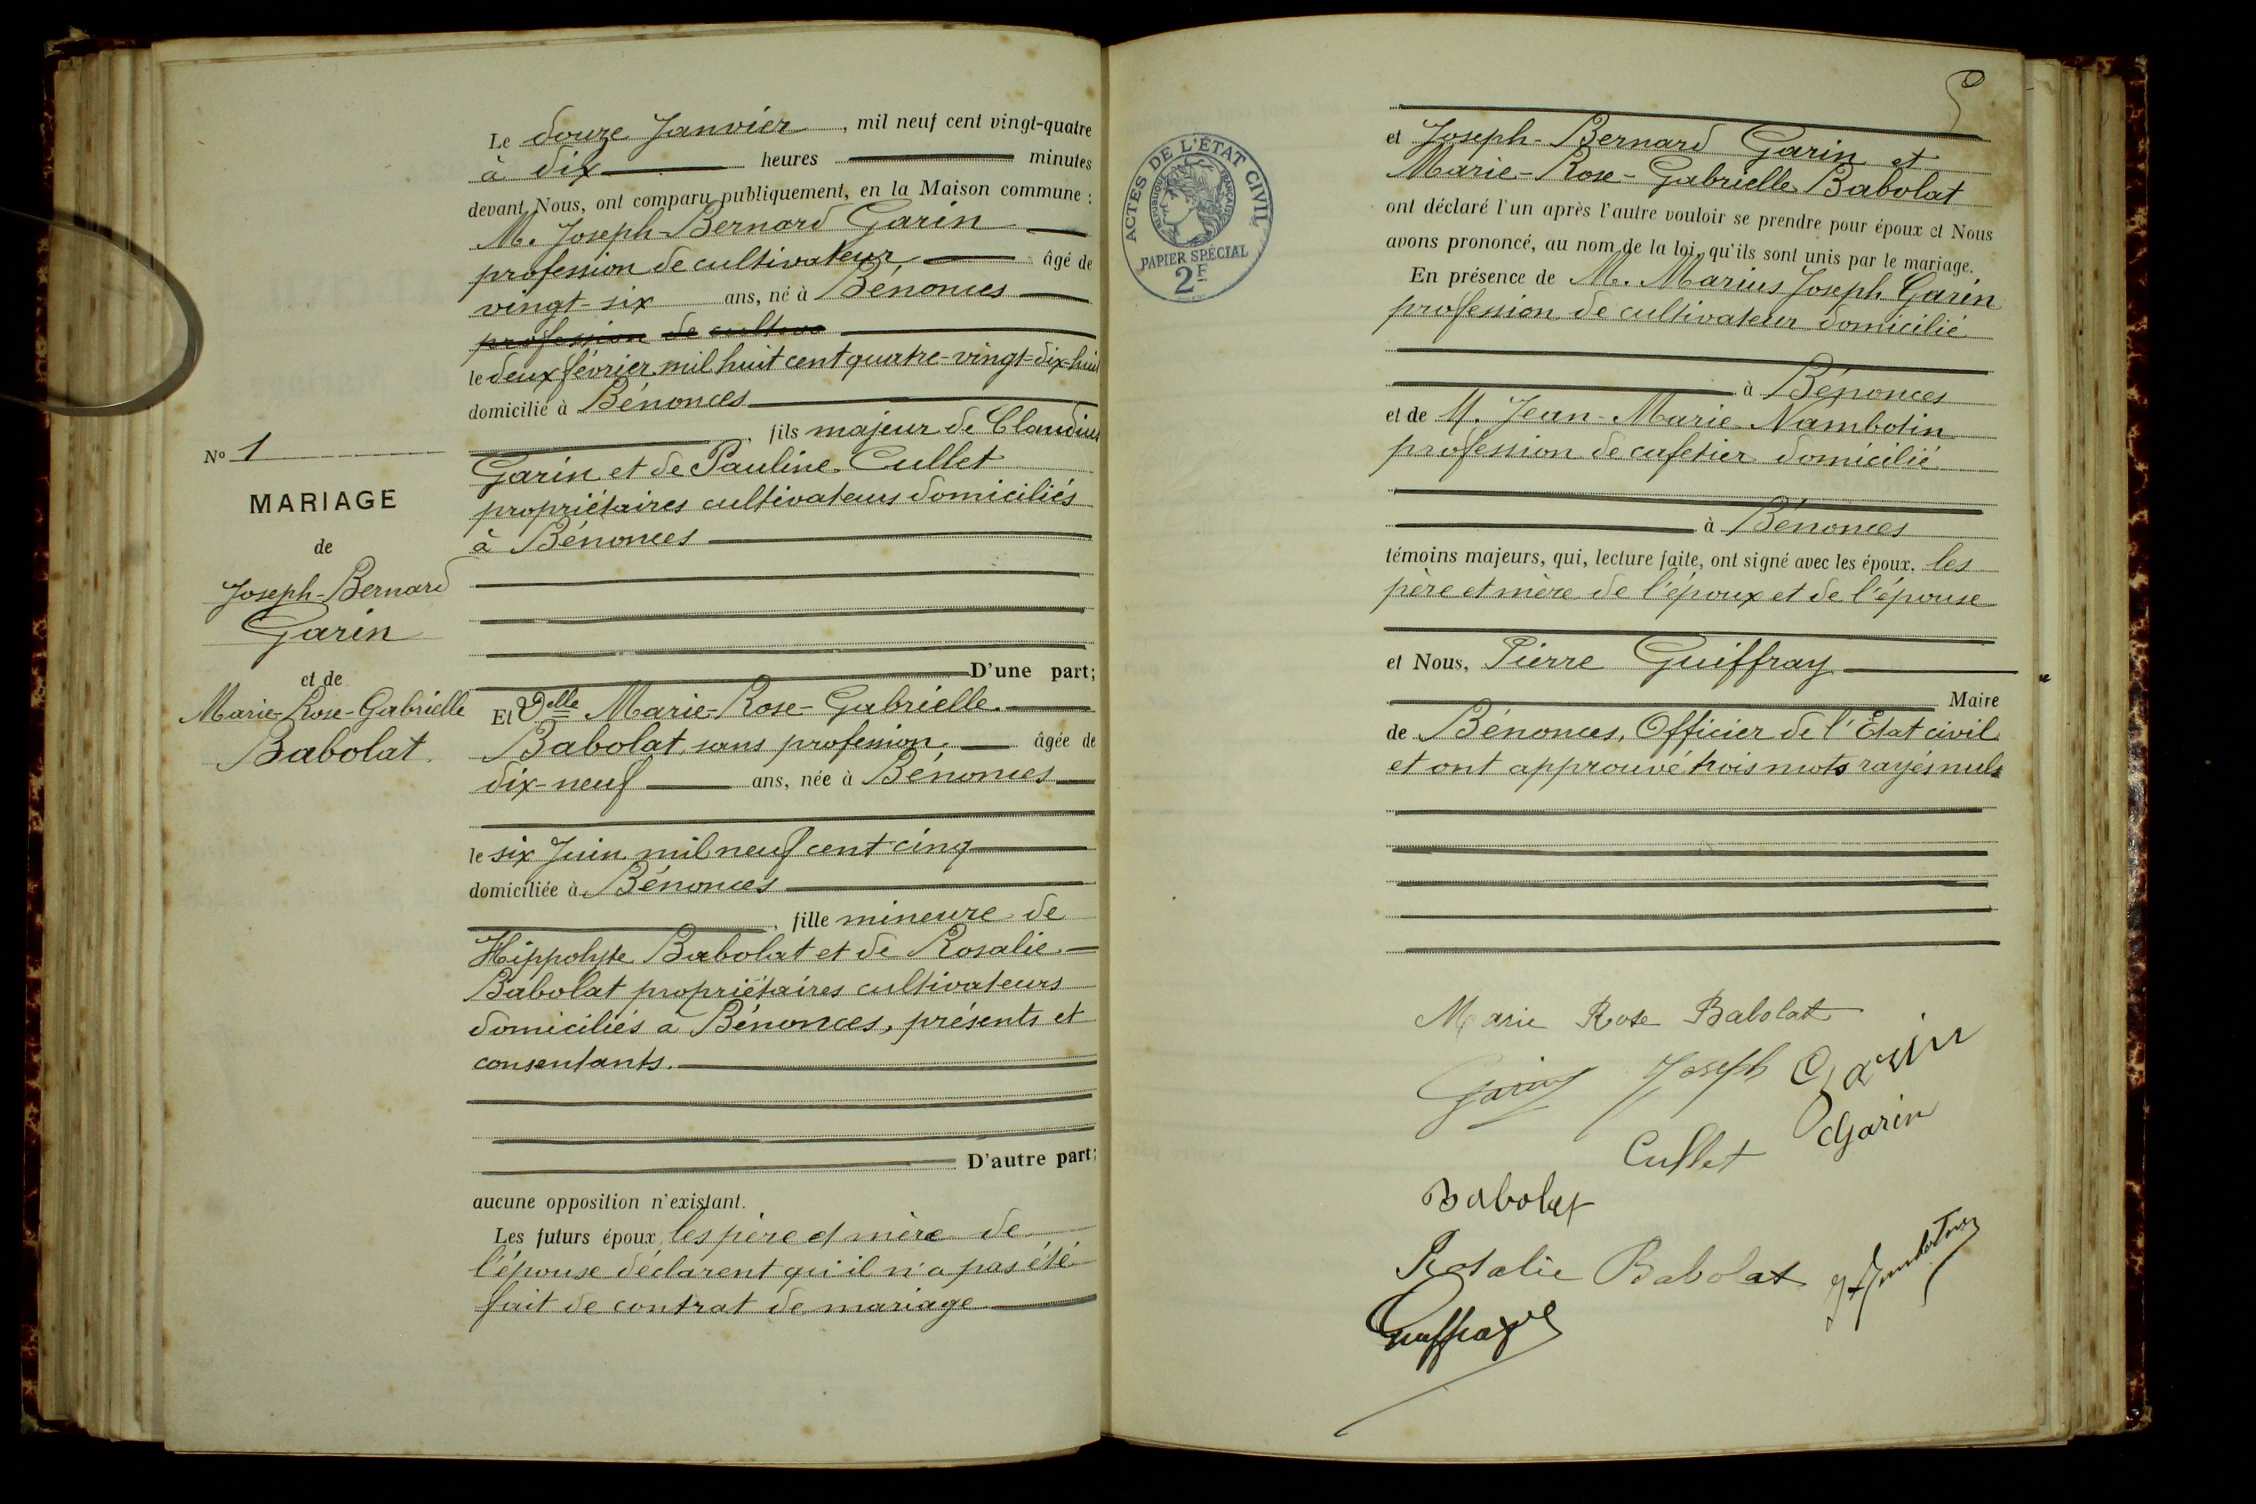 Le douze Janvier, mil neuf cent vingt-quatre
à dix heures minutes
devant Nous, ont comparu publiquement, en la Maison commune :
M. Joseph-Bernard Garin
profession de cultivateur âgé de
vingt-six ans, né à Bénonces
profession de cultiva
le deux février mil huit cent quatre-vingt-dix-huit
domicilié à Bénonces
, fils majeur de Claudius
Garin et de Pauline Cullet
propriétaires cultivateurs domiciliés
à Bénonces
D'une part;
Et Delle Marie-Rose-Gabrielle
Babolat sans profession âgée de
dix-neuf ans, née à Bénonces
le six Juin mil neuf cent cinq
domiciliée à Bénonces
, fille mineure de
Hippolyte Babolat et de Rosalie
Babolat propriétaires cultivateurs
domiciliés à Bénonces, présents et
consentants.
D'autre part;
aucune opposition n'existant.
Les futurs époux, les père et mère de
l'épouse déclarent qu'il n'a pas été
fait de contrat de mariage
No 1
MARIAGE
de
Joseph-Bernard
Garin
et de
Marie-Rose-Gabrielle
Babolat.
ACTES DE L'ÉTAT CIVIL
RÉPUBLIQUE FRANÇAISE
PAPIER SPÉCIAL
2F
et Joseph-Bernard Garin et
Marie-Rose-Gabrielle Babolat
ont déclaré l'un après l'autre vouloir se prendre pour époux et Nous
avons prononcé, au nom de la loi, qu'ils sont unis par le mariage.
En présence de M. Marius Joseph Garin
profession de cultivateur domicilié
à Bénonces
et de M. Jean-Marie Nambotin
profession de cafetier domicilié
à Bénonces
témoins majeurs, qui, lecture faite, ont signé avec les époux. les
père et mère de l'époux et de l'épouse
et Nous, Pierre Guiffray
Maire
de Bénonces, Officier de l'Etat civil
et ont approuvé trois mots rayés nuls
Marie Rose Babolat
Garin Joseph Garin
Cullet Garin
Babolat
Rosalie Babolat
Guiffray